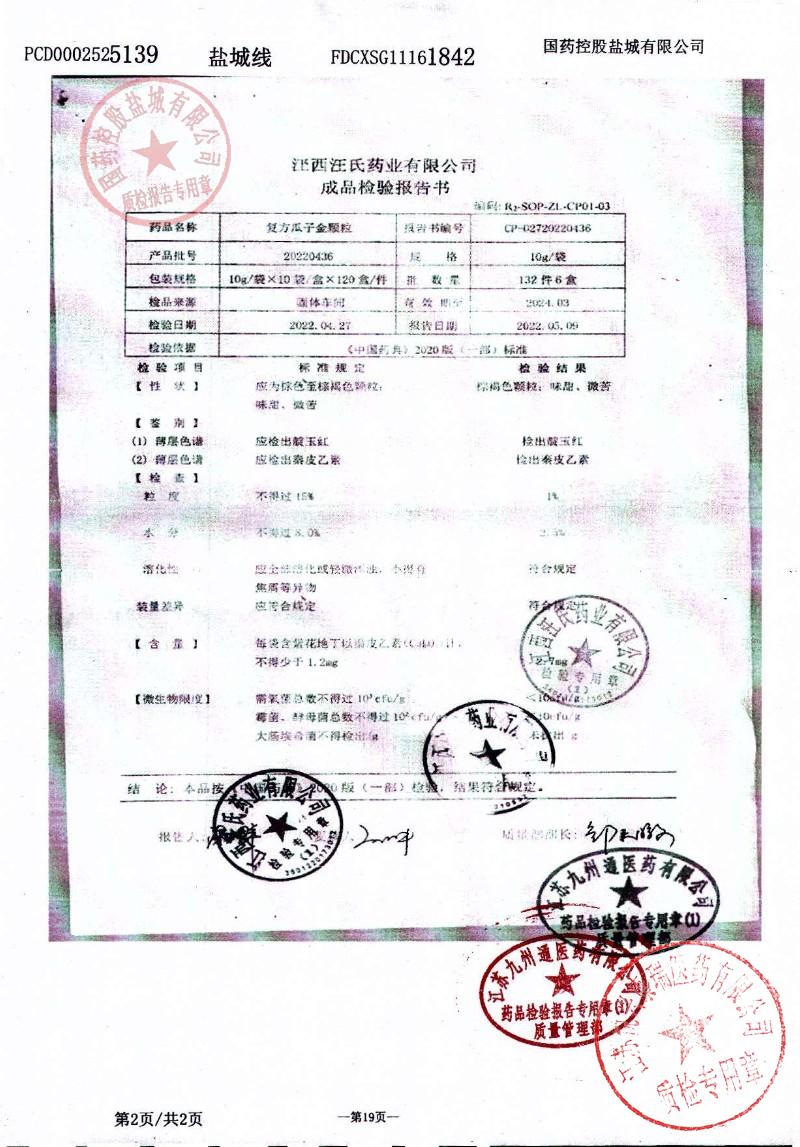 PCD0002525139 盐城线 FDCXSG11161842 国药控股盐城有限公司
国药控股盐城有限公司
质检报告专用章
江西汪氏药业有限公司
成品检验报告书
编码: R₂-SOP-ZL-CP01-03
药品名称 复方瓜子金颗粒 报告书编号 CP-02720220436
产品批号 20220436 规 格 10g/袋
包装规格 10g/袋×10袋/盒×120盒/件 批 数 量 132件6盒
检品来源 固体车间 有 效 期至 2024.03
检验日期 2022.04.27 报告日期 2022.05.09
检验依据 《中国药典》2020版（一部）标准
检 验 项 目 标 准 规 定 检 验 结 果
【 性 状 】 应为棕色至棕褐色颗粒； 棕褐色颗粒；味甜、微苦
味甜、微苦
【 鉴 别 】
(1) 薄层色谱 应检出靛玉红 检出靛玉红
(2) 薄层色谱 应检出秦皮乙素 检出秦皮乙素
【 检 查 】
粒 度 不得过15% 1%
水 分 不得过8.0%
溶化性 应全部溶化或轻微浑浊，不得有 符合规定
焦屑等异物
装量差异 应符合规定 符合规定
【 含 量 】 每袋含紫花地丁以秦皮乙素 计，
不得少于1.2mg 2.7mg
【微生物限度】 需氧菌总数不得过10³cfu/g
霉菌、酵母菌总数不得过10²cfu/g <10cfu/g
大肠埃希菌不得检出/g 未检出/g
江西汪氏药业有限公司
检验专用章
(2)
结 论：本品按《中国药典》2020版（一部）检验，结果符合规定。
报告人 质量部部长：
江西汪氏药业有限公司
检验专用章
(2)
江苏九州通医药有限公司
药品检验报告专用章(1)
质量管理部
江苏九州通医药有限公司
药品检验报告专用章(1)
质量管理部
瑞医药有限公司
质检专用章
第2页/共2页 —第19页—